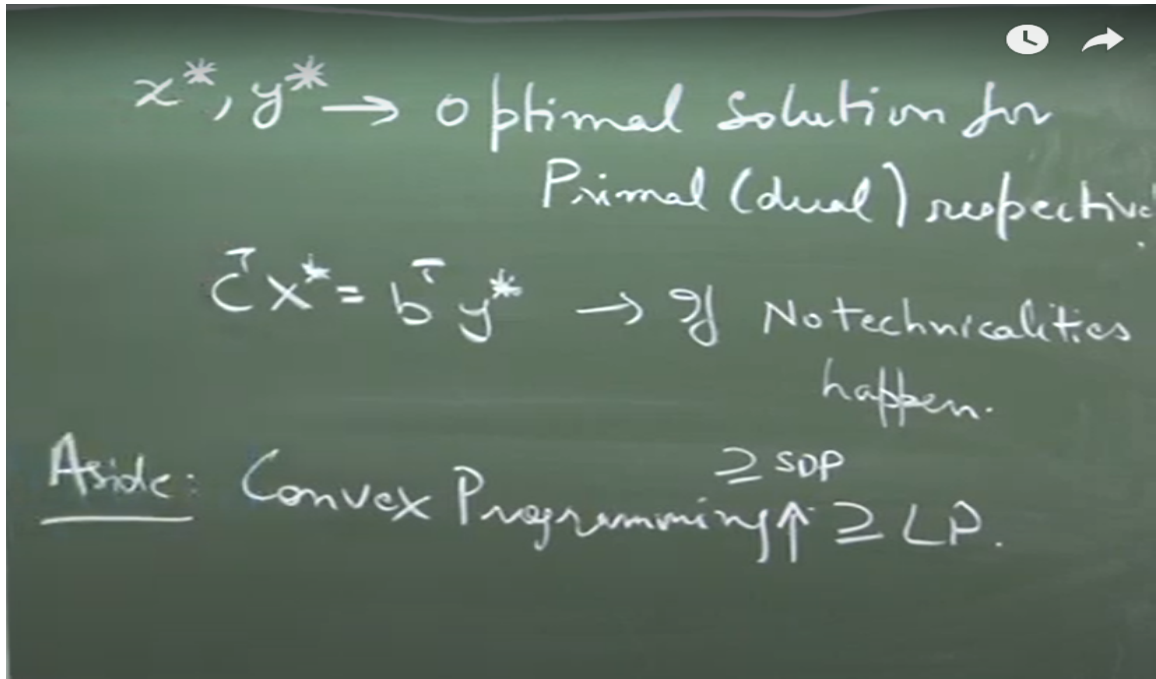 x*, y* → optimal solution for
Primal (dual) respective
cᵀx* = bᵀy* → If No technicalities
happen.
≥ SDP
Aside: Convex Programming ↑ ≥ LP.